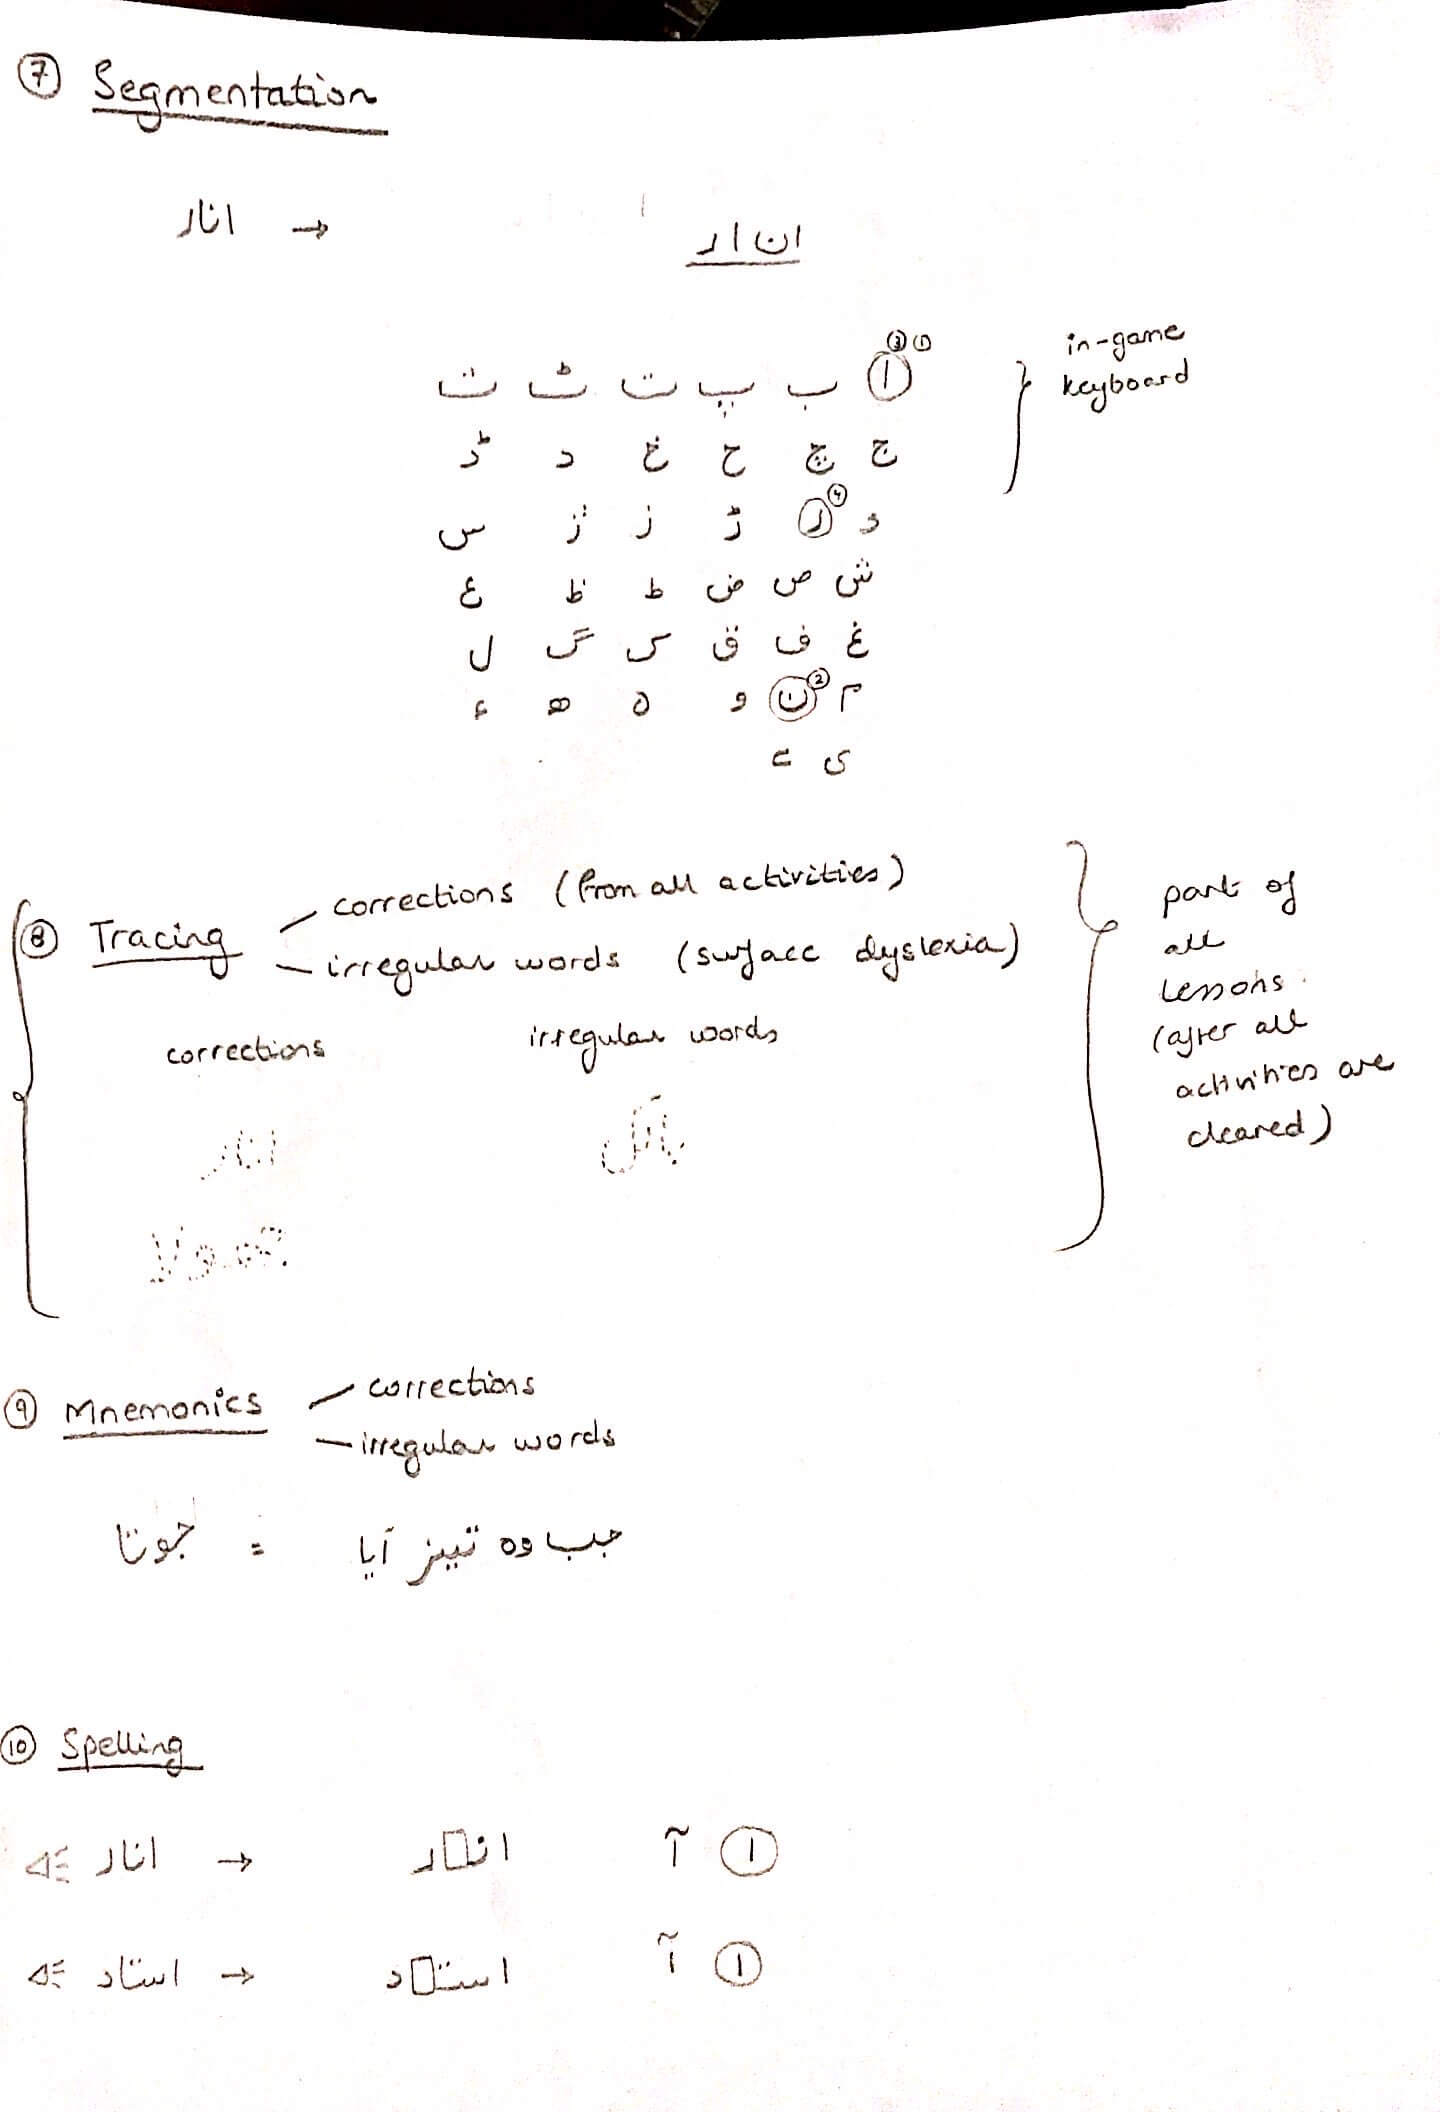 ⑦ Segmentation
انار → ان ار
③ ①
ا ب پ ت ٹ ث
in-game
keyboard
ج چ ح خ د ڈ
④
ذ ر ڑ ز ژ س
ش ص ض ط ظ ع
غ ف ق ک گ ل
②
م ن و ہ ھ ء
ی ے
⑧ Tracing
corrections (from all activities)
irregular words (surface dyslexia)
corrections irregular words
انار بالکل
part of
all
lessons.
(after all
activities are
cleared)
⑨ Mnemonics
corrections
irregular words
جوتا = جب وہ تیز آیا
⑩ Spelling
انار → ان□ر آ ا
استاد → است□د آ ا